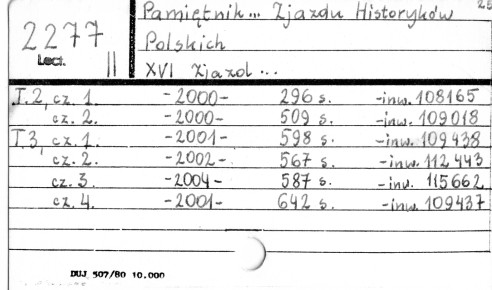 25
Pamiętnik... Zjazdu Historyków
2277 Polskich
Lect. II XVI Zjazd ...
T.2, cz. 1. -2000- 296 s. -inw. 108165
cz. 2. -2000- 509 s. -inw. 109018
T.3, cz. 1. -2001- 598 s. -inw. 109438
cz. 2. -2002- 567 s. -inw. 112443
cz. 3 -2004- 587 s. -inw. 115662
cz. 4. -2001- 642 s. -inw. 109437
DUJ 507/80 10.000